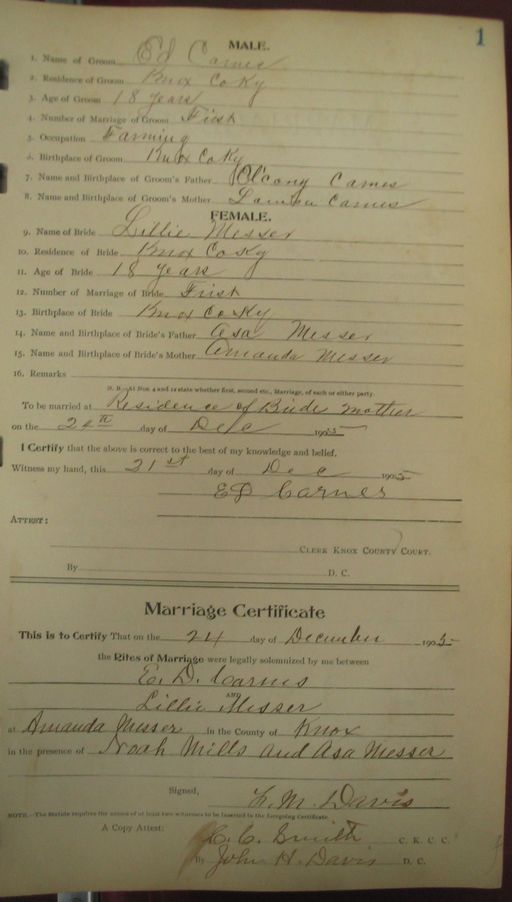 1
MALE.
1. Name of Groom Ed Carnes
2. Residence of Groom Knox Co Ky
3. Age of Groom 18 years
4. Number of Marriage of Groom First
5. Occupation Farming
6. Birthplace of Groom Knox Co Ky
7. Name and Birthplace of Groom's Father Carnes
8. Name and Birthplace of Groom's Mother Carnes
FEMALE.
9. Name of Bride Lillie Messer
10. Residence of Bride Knox Co Ky
11. Age of Bride 18 years
12. Number of Marriage of Bride First
13. Birthplace of Bride Knox Co Ky
14. Name and Birthplace of Bride's Father Asa Messer
15. Name and Birthplace of Bride's Mother Amanda Messer
16. Remarks
N. B.—At Nos. 4 and 12 state whether first, second etc., Marriage, of each or either party.
To be married at Residence of Bride Mother
on the 24th day of Dec 1905
I Certify that the above is correct to the best of my knowledge and belief.
Witness my hand, this 21st day of Dec 1905
ED Carnes
ATTEST:
CLERK KNOX COUNTY COURT.
By D. C.
Marriage Certificate
This is to Certify That on the 24 day of December 1905
the Rites of Marriage were legally solemnized by me between
E. D. Carnes
AND
Lillie Messer
at Amanda Messer in the County of Knox
in the presence of Noah Mills and Asa Messer
Signed, F. M. Davis
NOTE.—The Statute requires the names of at least two witnesses to be inserted in the foregoing Certificate.
A Copy Attest: C. C. Smith C. K. C. C.
By John H. Davis D. C.